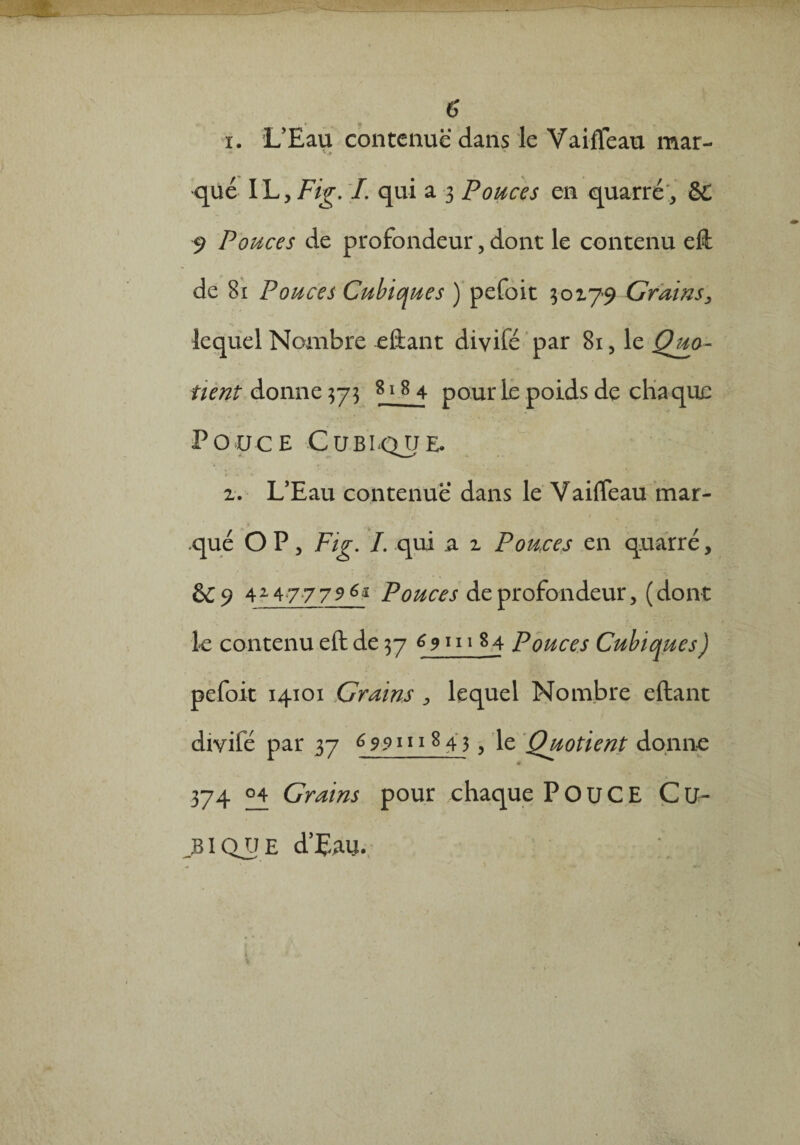 6
1. L'Eau contenuë dans le Vaiſſeau mar-
qué IL, Fig. I. qui a 3 Pouces en quarré, &
9 Pouces de profondeur, dont le contenu eſt
de 81 Pouces Cubiques ) peſoit 30279 Grains,
lequel Nombre eſtant diviſé par 81, le Quo-
tient donne 373 8184 pour le poids de chaque
POUCE CUBIQUE.
2. L'Eau contenuë dans le Vaiſſeau mar-
qué OP, Fig. I. qui a 2 Pouces en quarré,
& 9 424777961 Pouces de profondeur, (dont
le contenu eſt de 37 6911184 Pouces Cubiques)
peſoit 14101 Grains, lequel Nombre eſtant
diviſé par 37 699111843, le Quotient donne
374 04 Grains pour chaque POUCE CU-
BIQUE d'Eau.